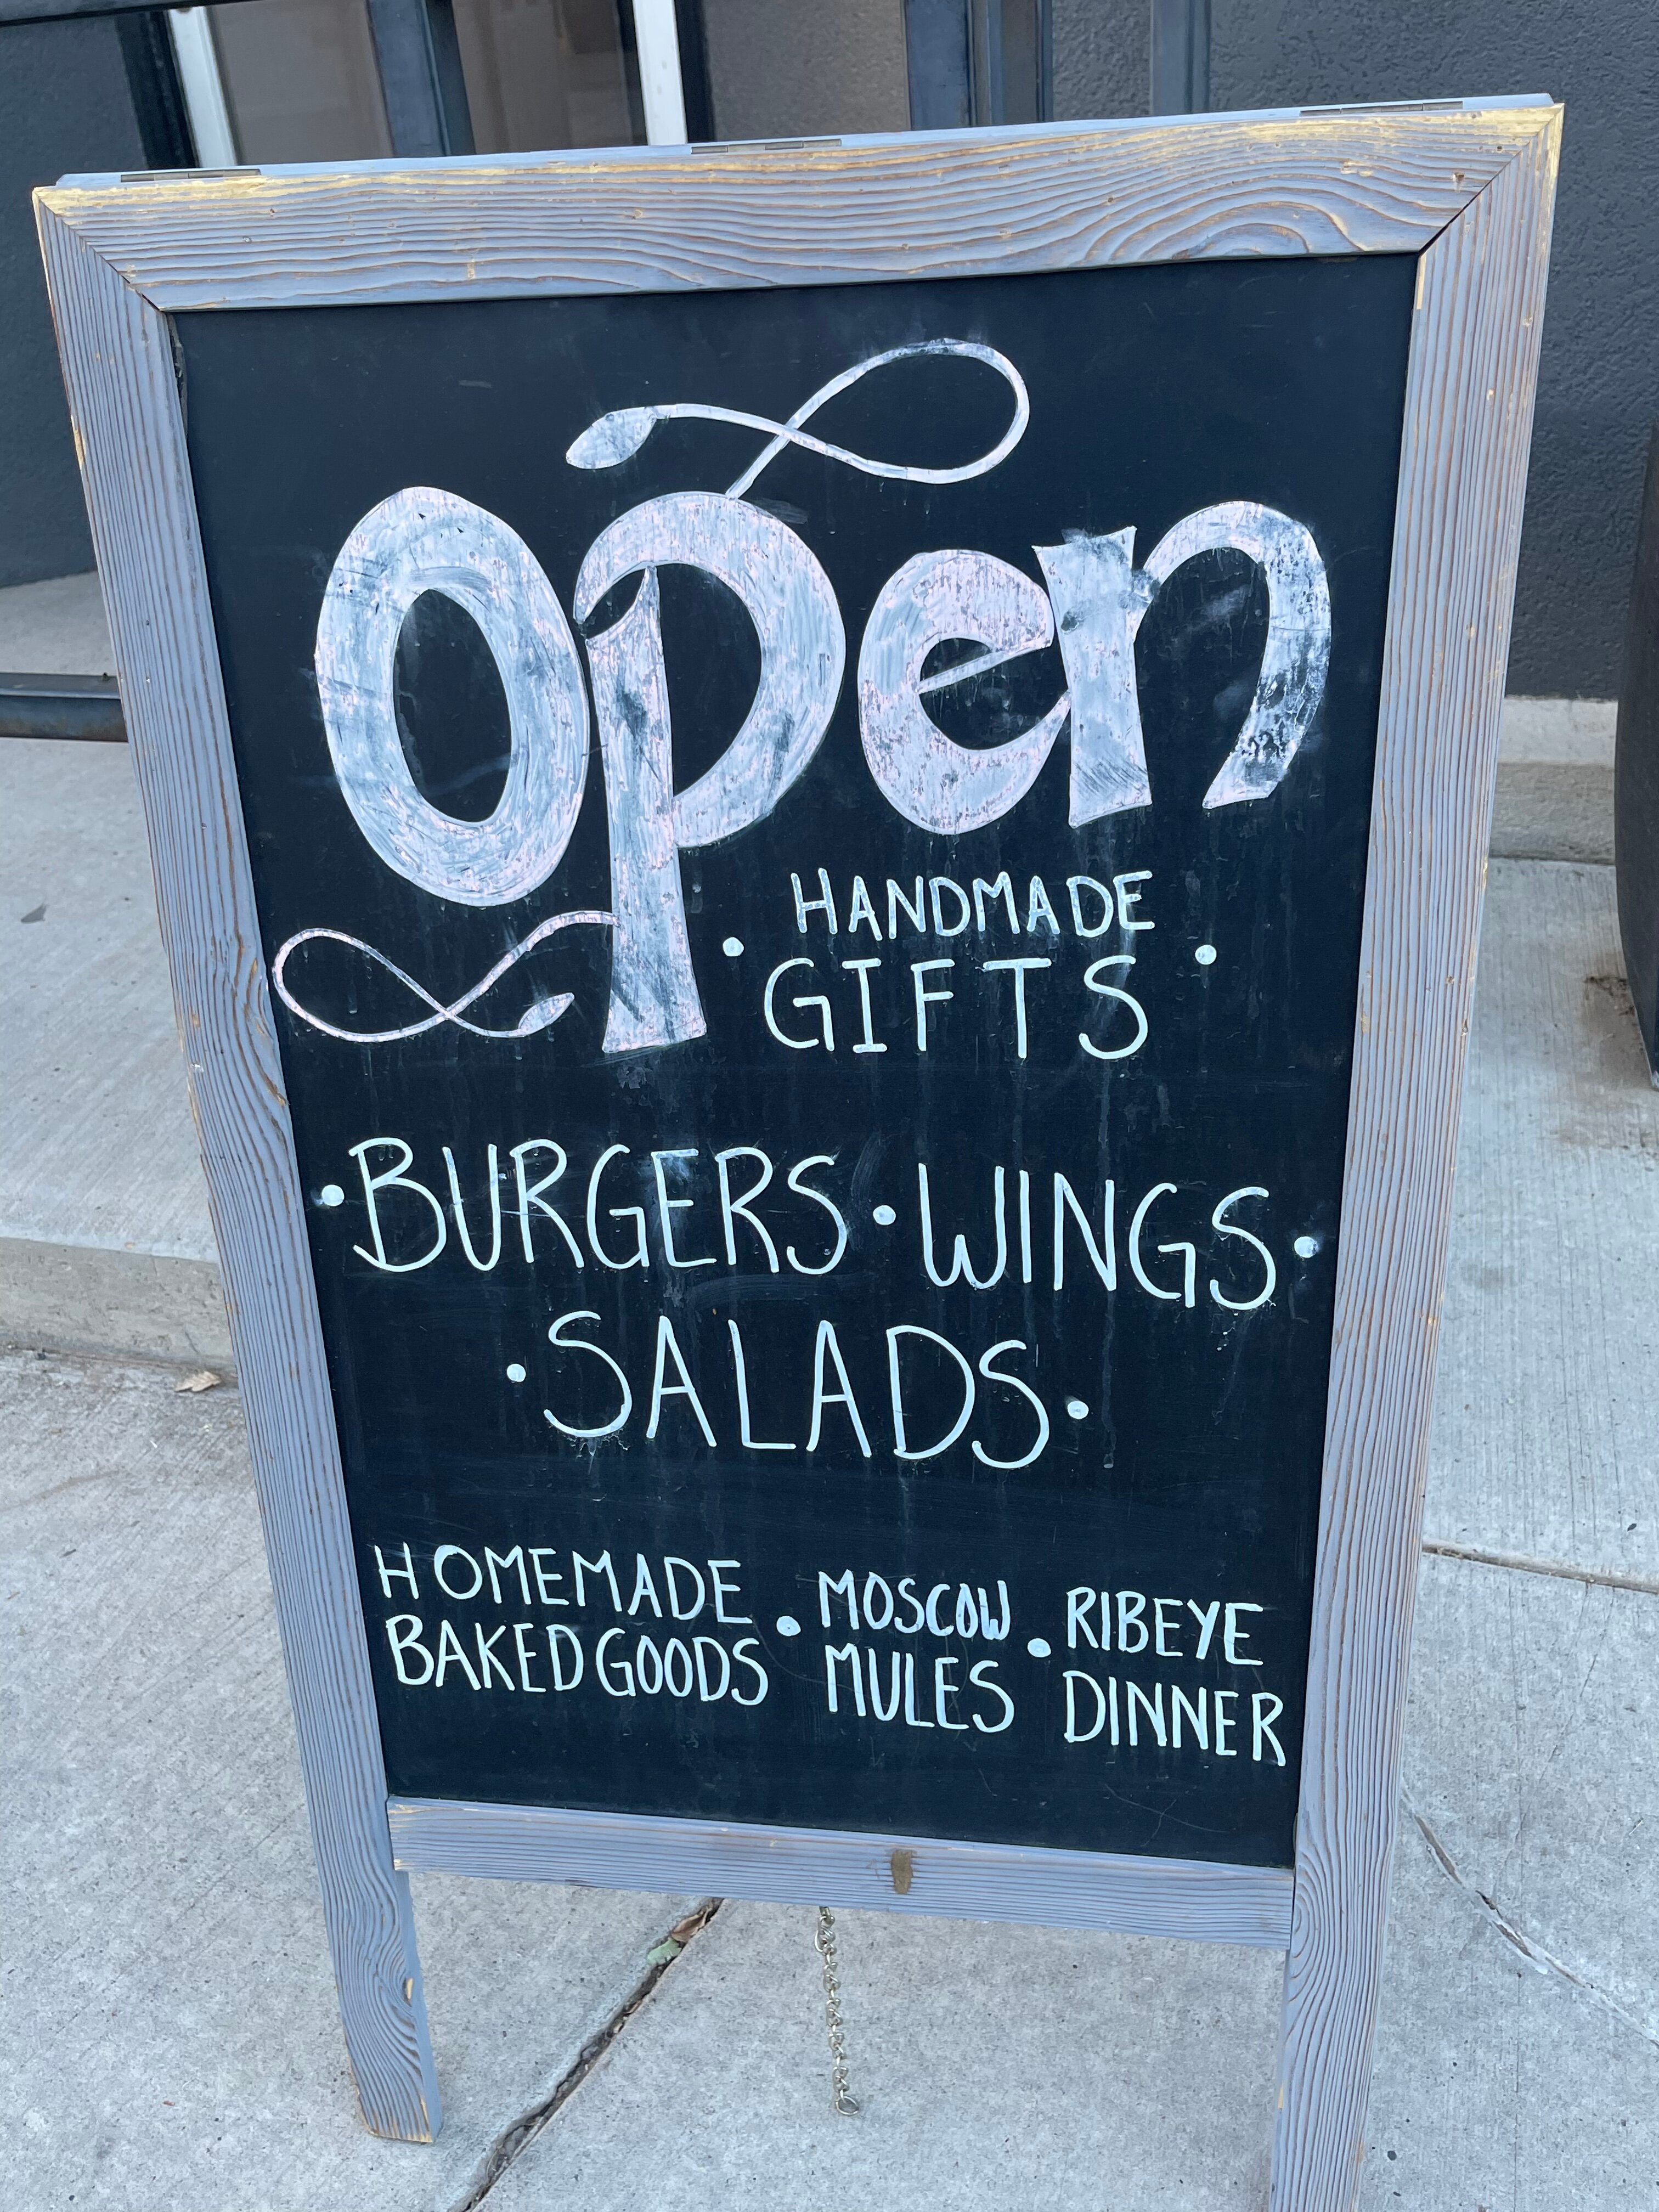 open
• HANDMADE •
GIFTS
• BURGERS • WINGS •
• SALADS •
HOMEMADE • MOSCOW • RIBEYE
BAKED GOODS MULES DINNER